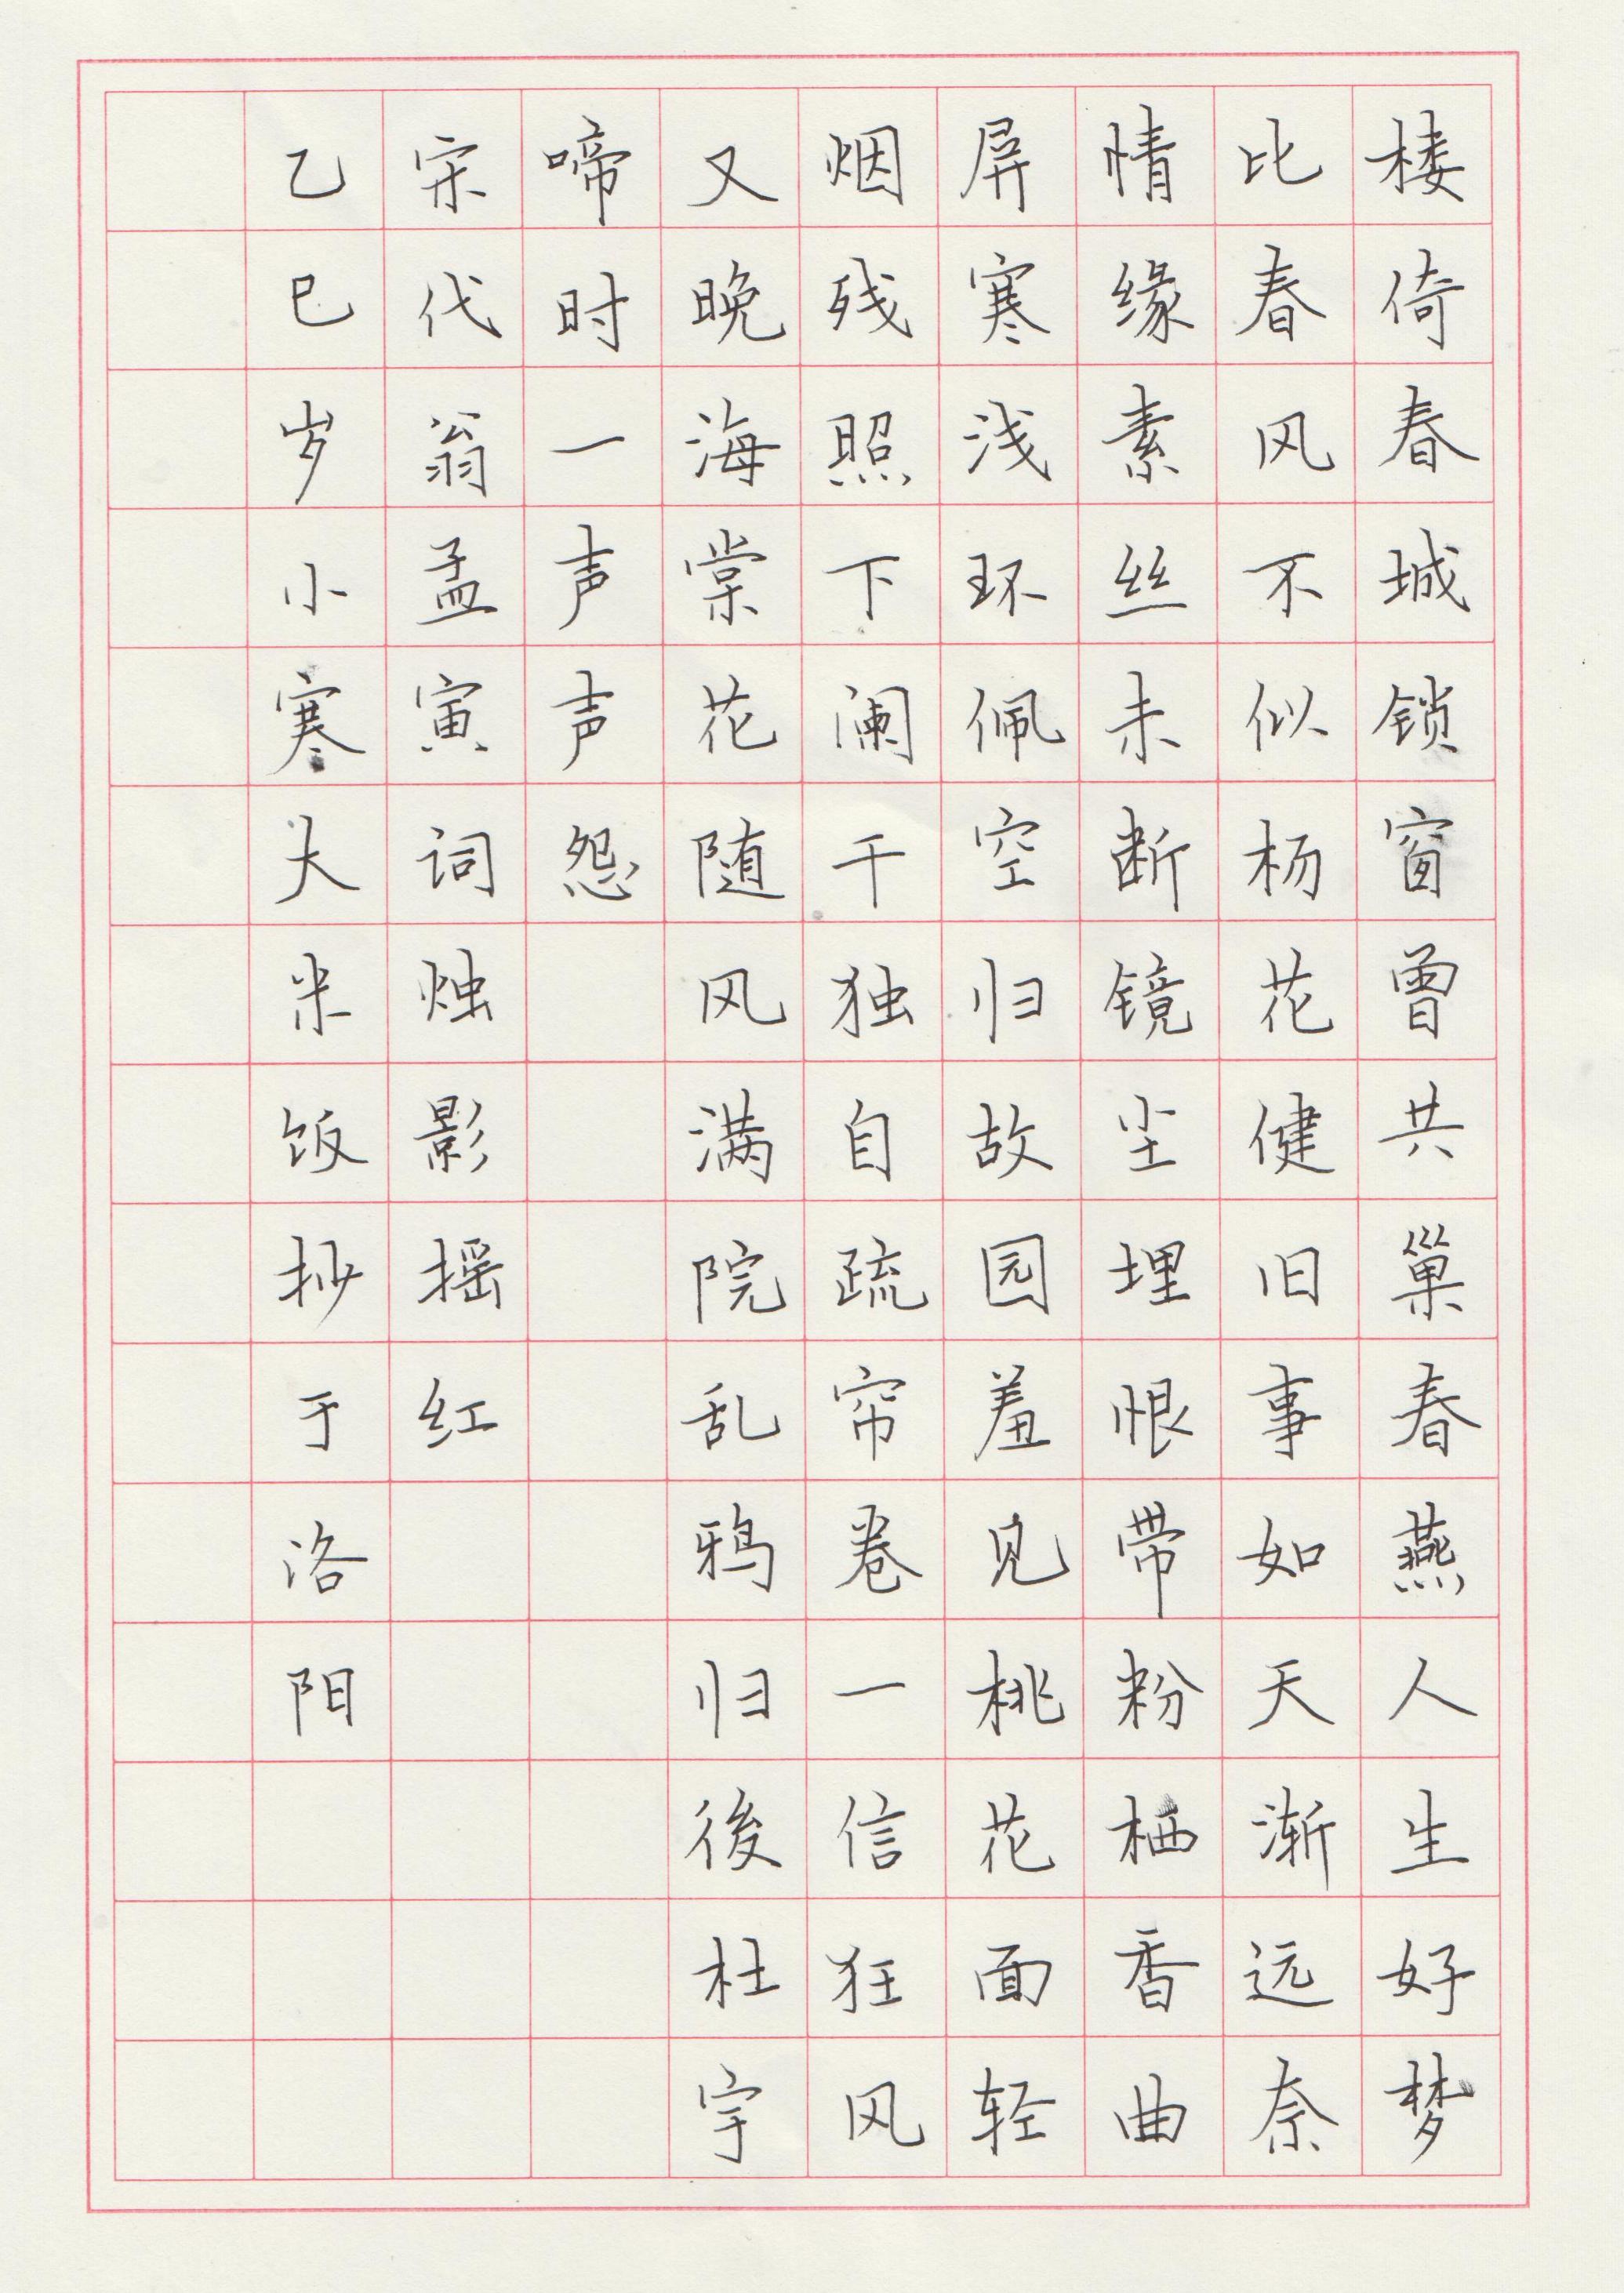 楼倚春城锁窗曾共巢春燕人生好梦
比春风不似杨花健旧事如天渐远奈
情缘素丝未断镜尘埋恨带粉栖香曲
屏寒浅环佩空归故园羞见桃花面轻
烟残照下阑干独自疏帘卷一信狂风
又晚海棠花随风满院乱鸦归後杜宇
啼时一声声怨
宋代翁孟寅词烛影摇红
乙巳岁小寒大米饭抄于洛阳